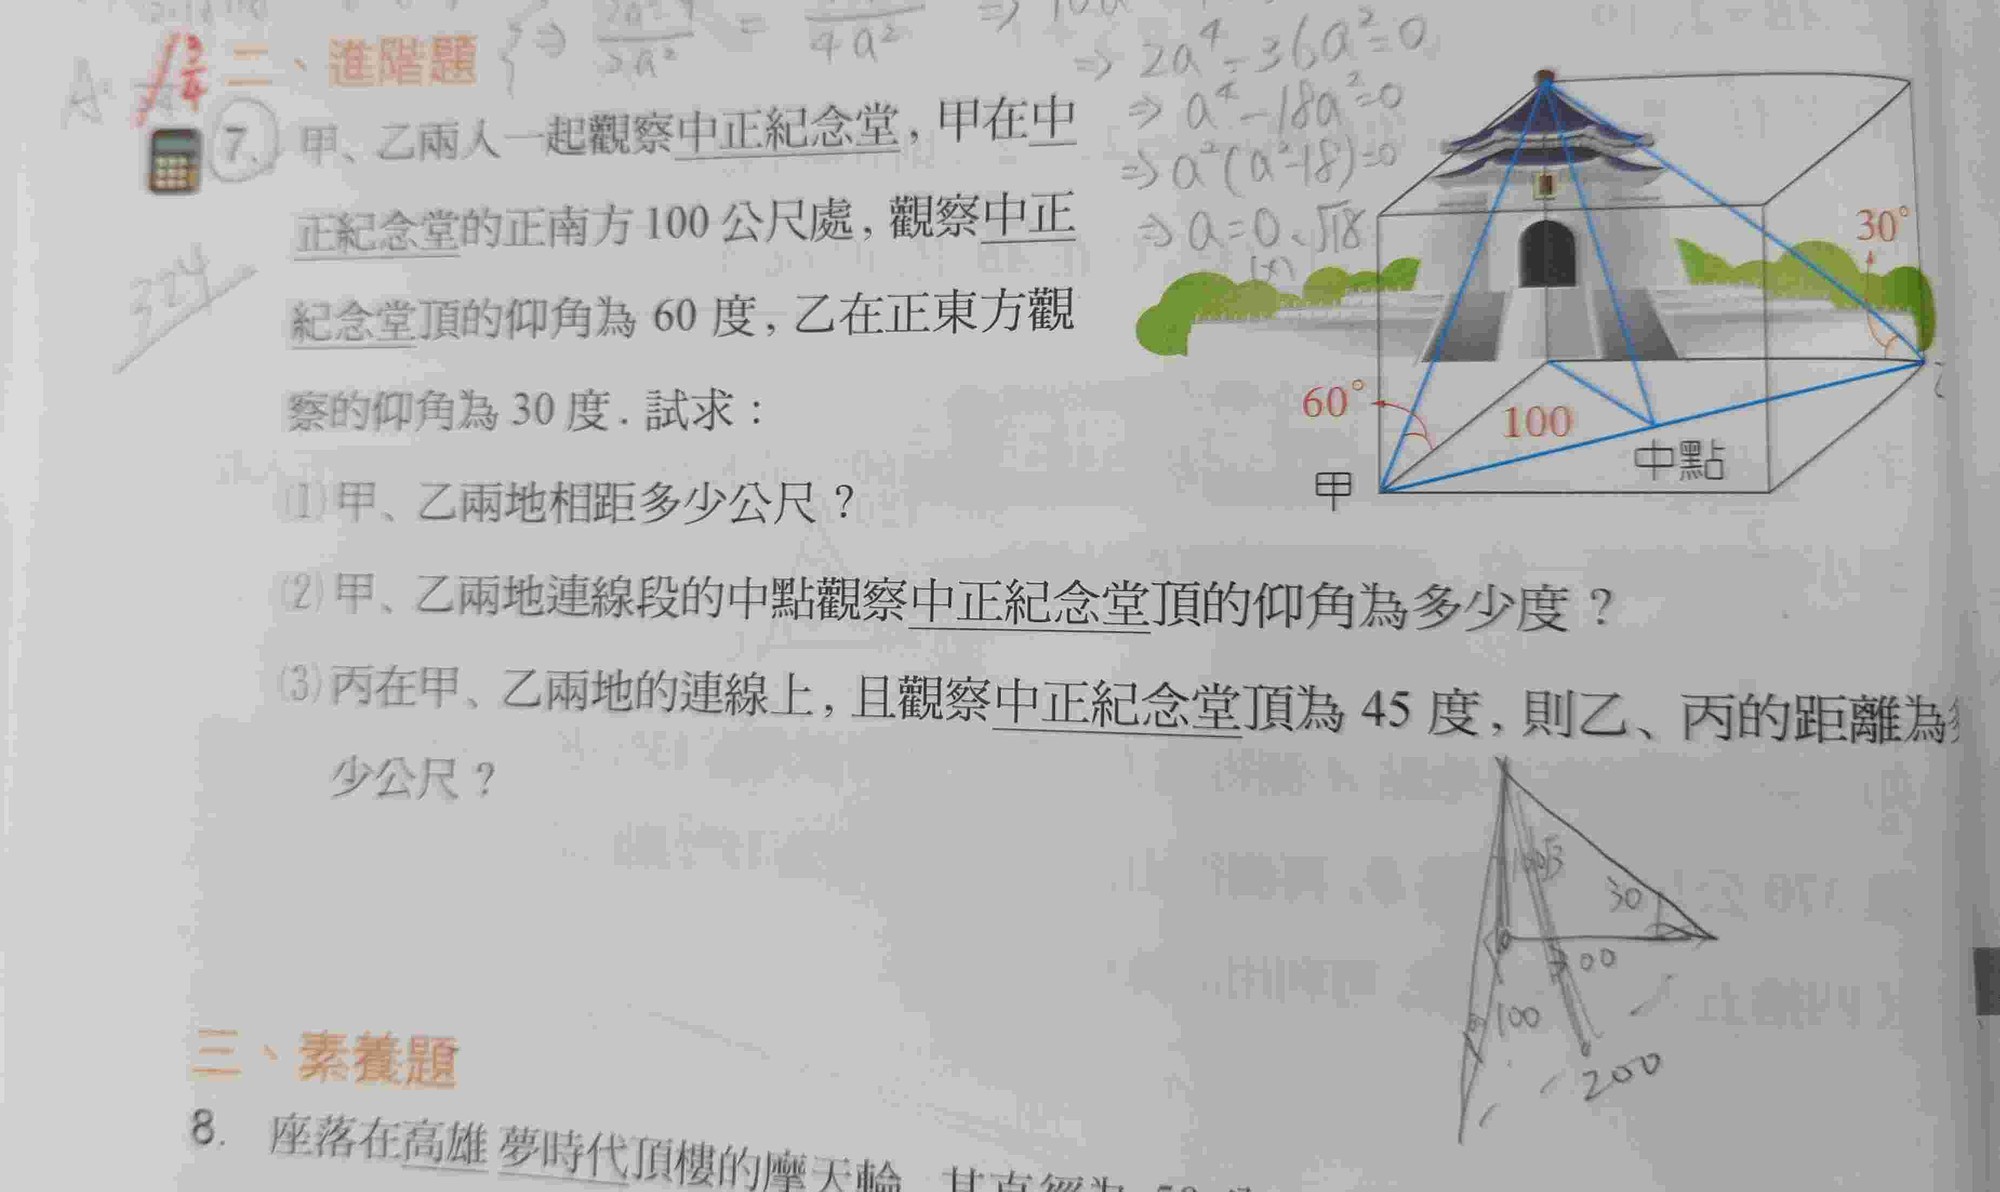 二、進階題
⇒ 2a⁴-36a²=0
⇒ a⁴-18a²=0
⇒ a²(a²-18)=0
⇒ a=0、√18
(x)
7. 甲、乙兩人一起觀察中正紀念堂,甲在中
正紀念堂的正南方100公尺處,觀察中正
紀念堂頂的仰角為 60 度,乙在正東方觀
察的仰角為 30 度.試求:
324
30°
60°
100
中點
甲
(1)甲、乙兩地相距多少公尺?
(2)甲、乙兩地連線段的中點觀察中正紀念堂頂的仰角為多少度?
(3)丙在甲、乙兩地的連線上,且觀察中正紀念堂頂為 45 度,則乙、丙的距離為
少公尺?
30
300
100
200
三、素養題
8. 座落在高雄夢時代頂樓的摩天輪